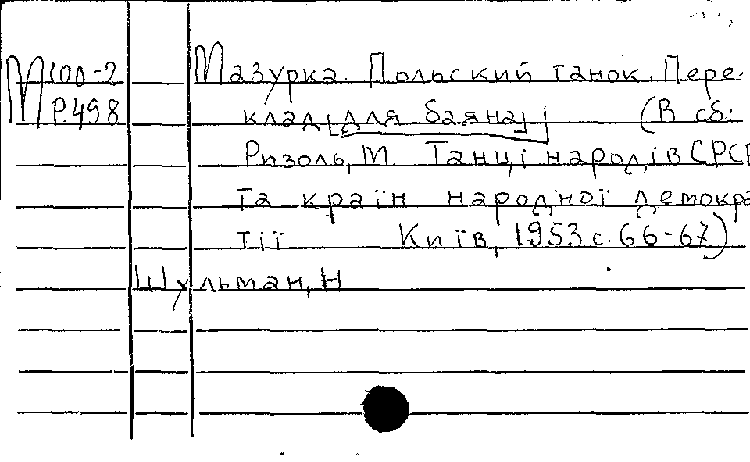 М100-2 Мазурка. Польский танок. Пере-
Р498 клад [для баяна] (В сб.:
Ризоль, М. Танці народів СРСР
та країн народної демокра
тії Київ, 1953 с. 66-67)
Шульман, Н